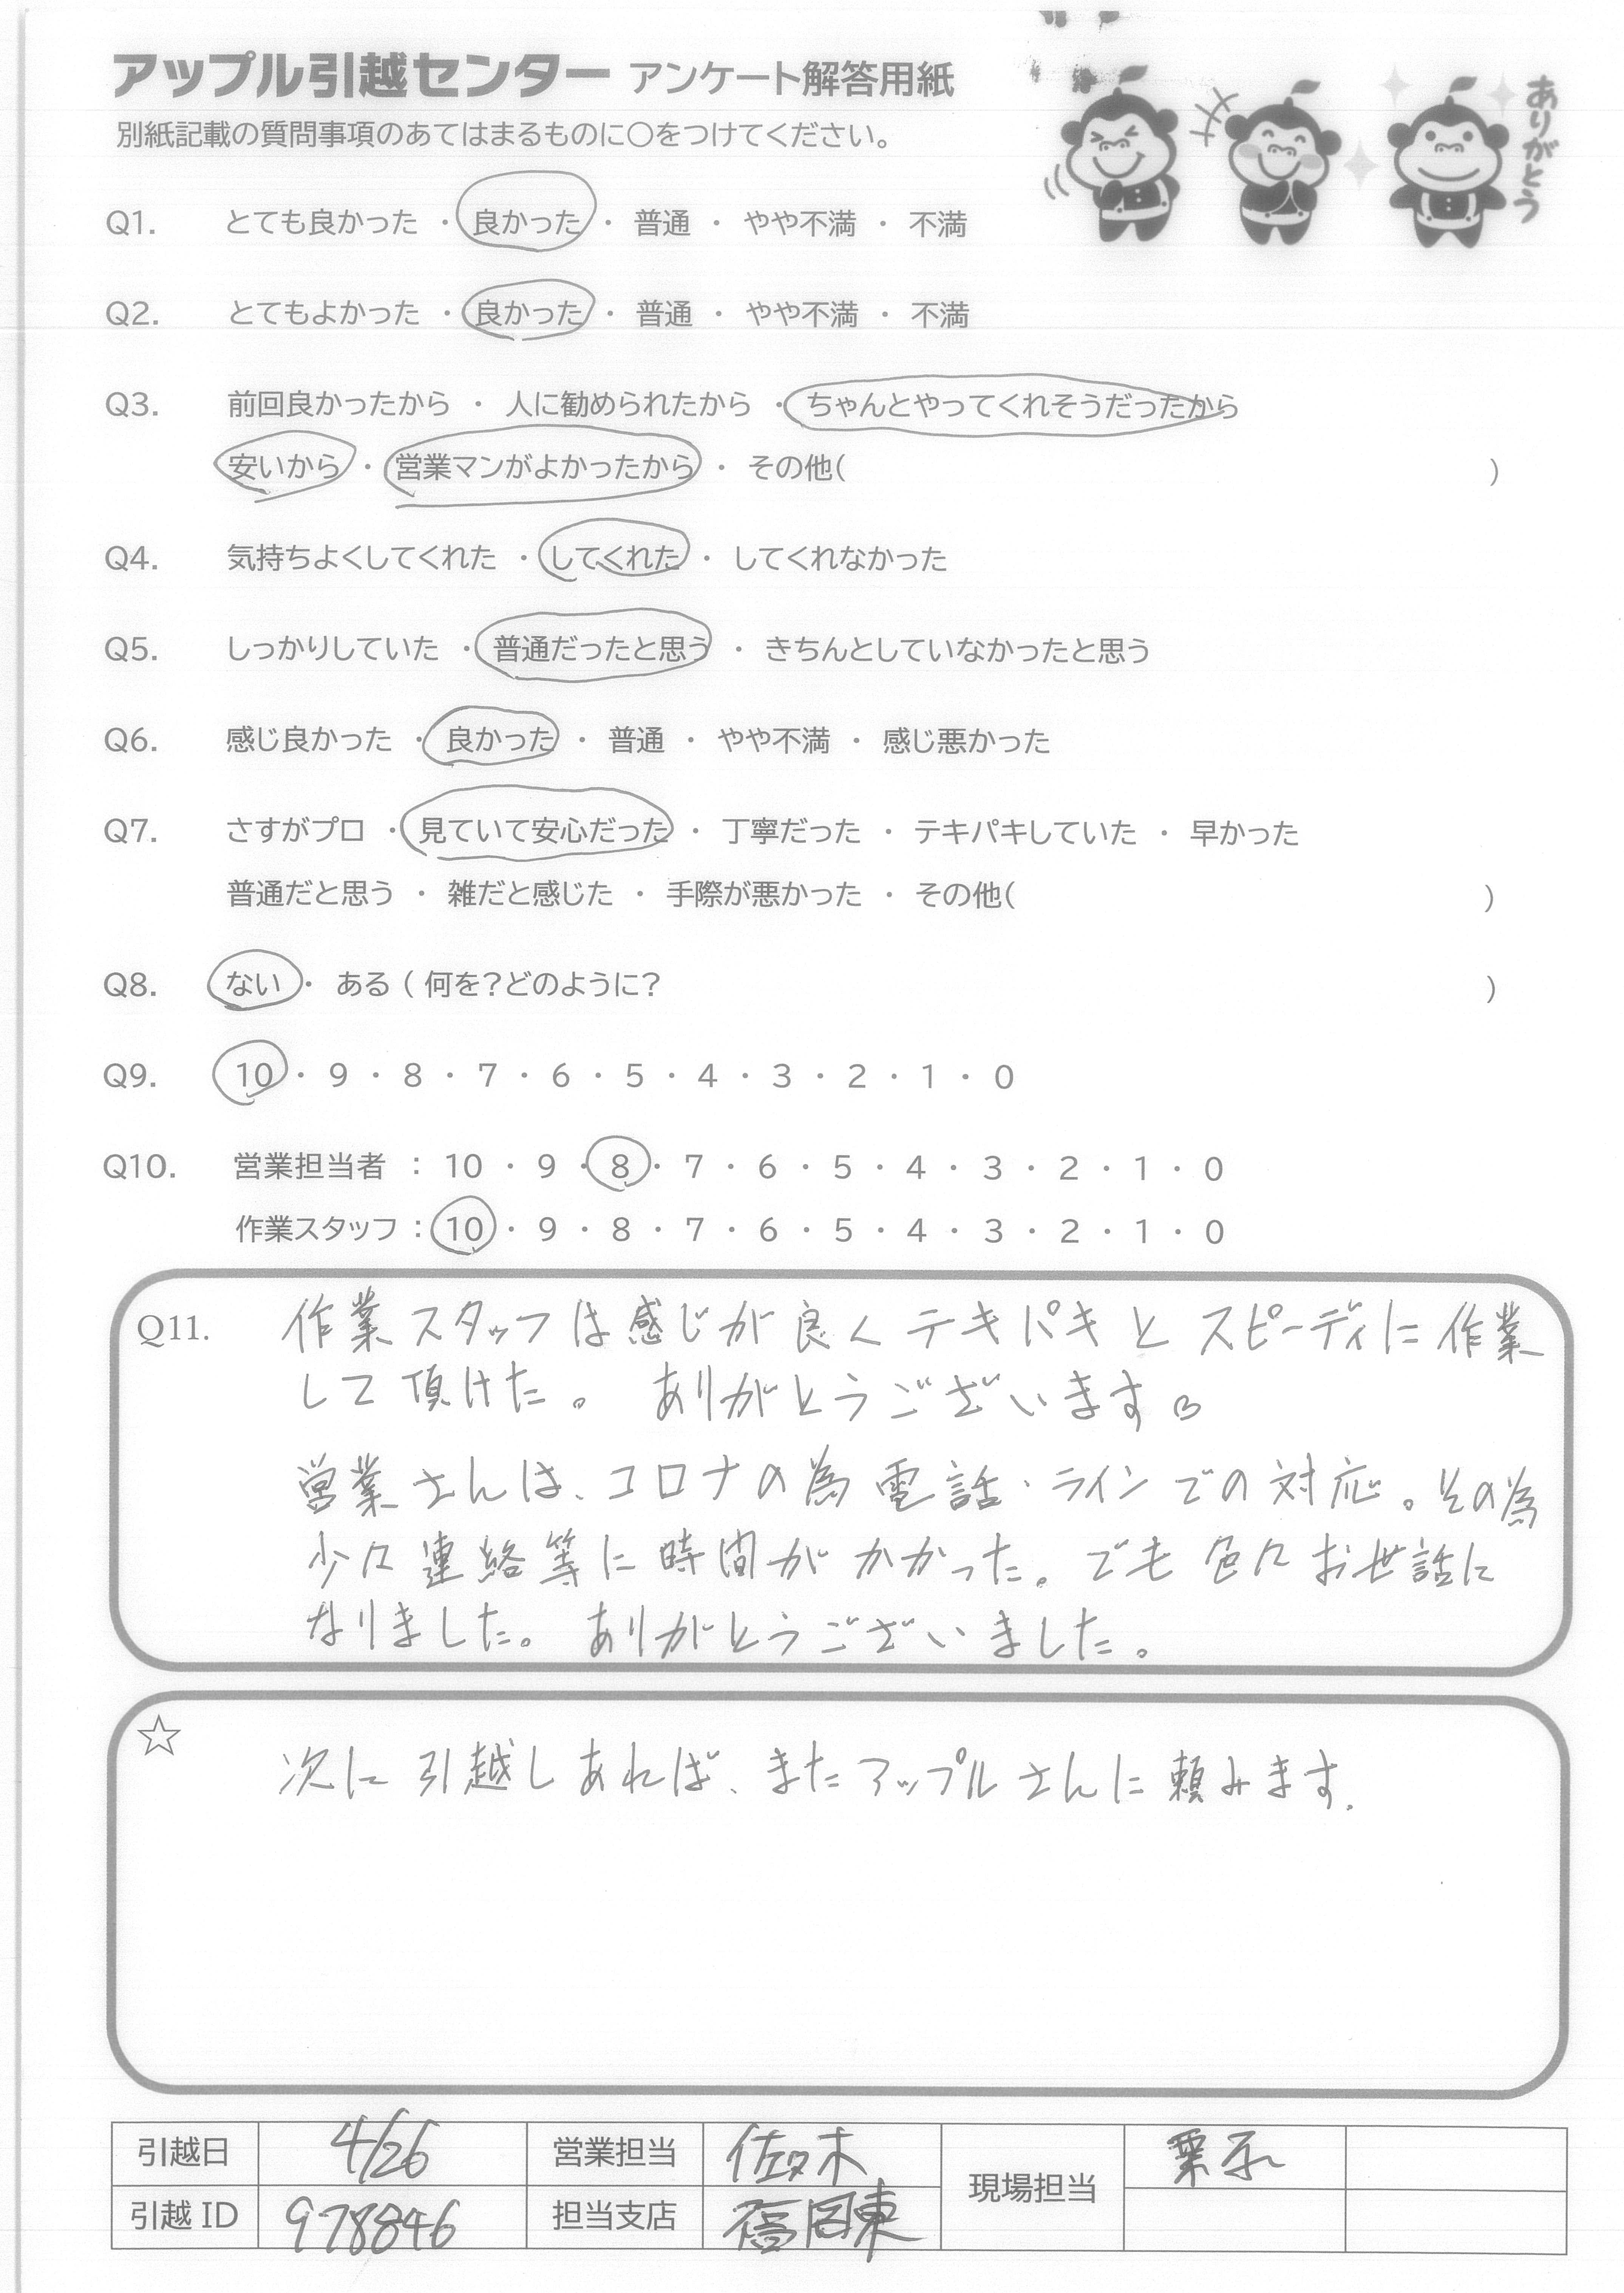 アップル引越センター アンケート解答用紙
別紙記載の質問事項のあてはまるものに○をつけてください。
ありがとう
Q1. とても良かった ・ 良かった ・ 普通 ・ やや不満 ・ 不満
Q2. とてもよかった ・ 良かった ・ 普通 ・ やや不満 ・ 不満
Q3. 前回良かったから ・ 人に勧められたから ・ ちゃんとやってくれそうだったから
安いから ・ 営業マンがよかったから ・ その他( )
Q4. 気持ちよくしてくれた ・ してくれた ・ してくれなかった
Q5. しっかりしていた ・ 普通だったと思う ・ きちんとしていなかったと思う
Q6. 感じ良かった ・ 良かった ・ 普通 ・ やや不満 ・ 感じ悪かった
Q7. さすがプロ ・ 見ていて安心だった ・ 丁寧だった ・ テキパキしていた ・ 早かった
普通だと思う ・ 雑だと感じた ・ 手際が悪かった ・ その他( )
Q8. ない ・ ある ( 何を?どのように? )
Q9. 10 ・ 9 ・ 8 ・ 7 ・ 6 ・ 5 ・ 4 ・ 3 ・ 2 ・ 1 ・ 0
Q10. 営業担当者 : 10 ・ 9 ・ 8 ・ 7 ・ 6 ・ 5 ・ 4 ・ 3 ・ 2 ・ 1 ・ 0
作業スタッフ : 10 ・ 9 ・ 8 ・ 7 ・ 6 ・ 5 ・ 4 ・ 3 ・ 2 ・ 1 ・ 0
Q11. 作業スタッフは感じが良くテキパキとスピーディに作業
して頂けた。ありがとうございます。
営業さんは、コロナの為電話・ラインでの対応。その為
少々連絡等に時間がかかった。でも色々お世話に
なりました。ありがとうございました。
☆ 次に引越しあれば、またアップルさんに頼みます.
引越日 4/26 営業担当 佐々木 現場担当 栗原
引越 ID 978846 担当支店 福岡東